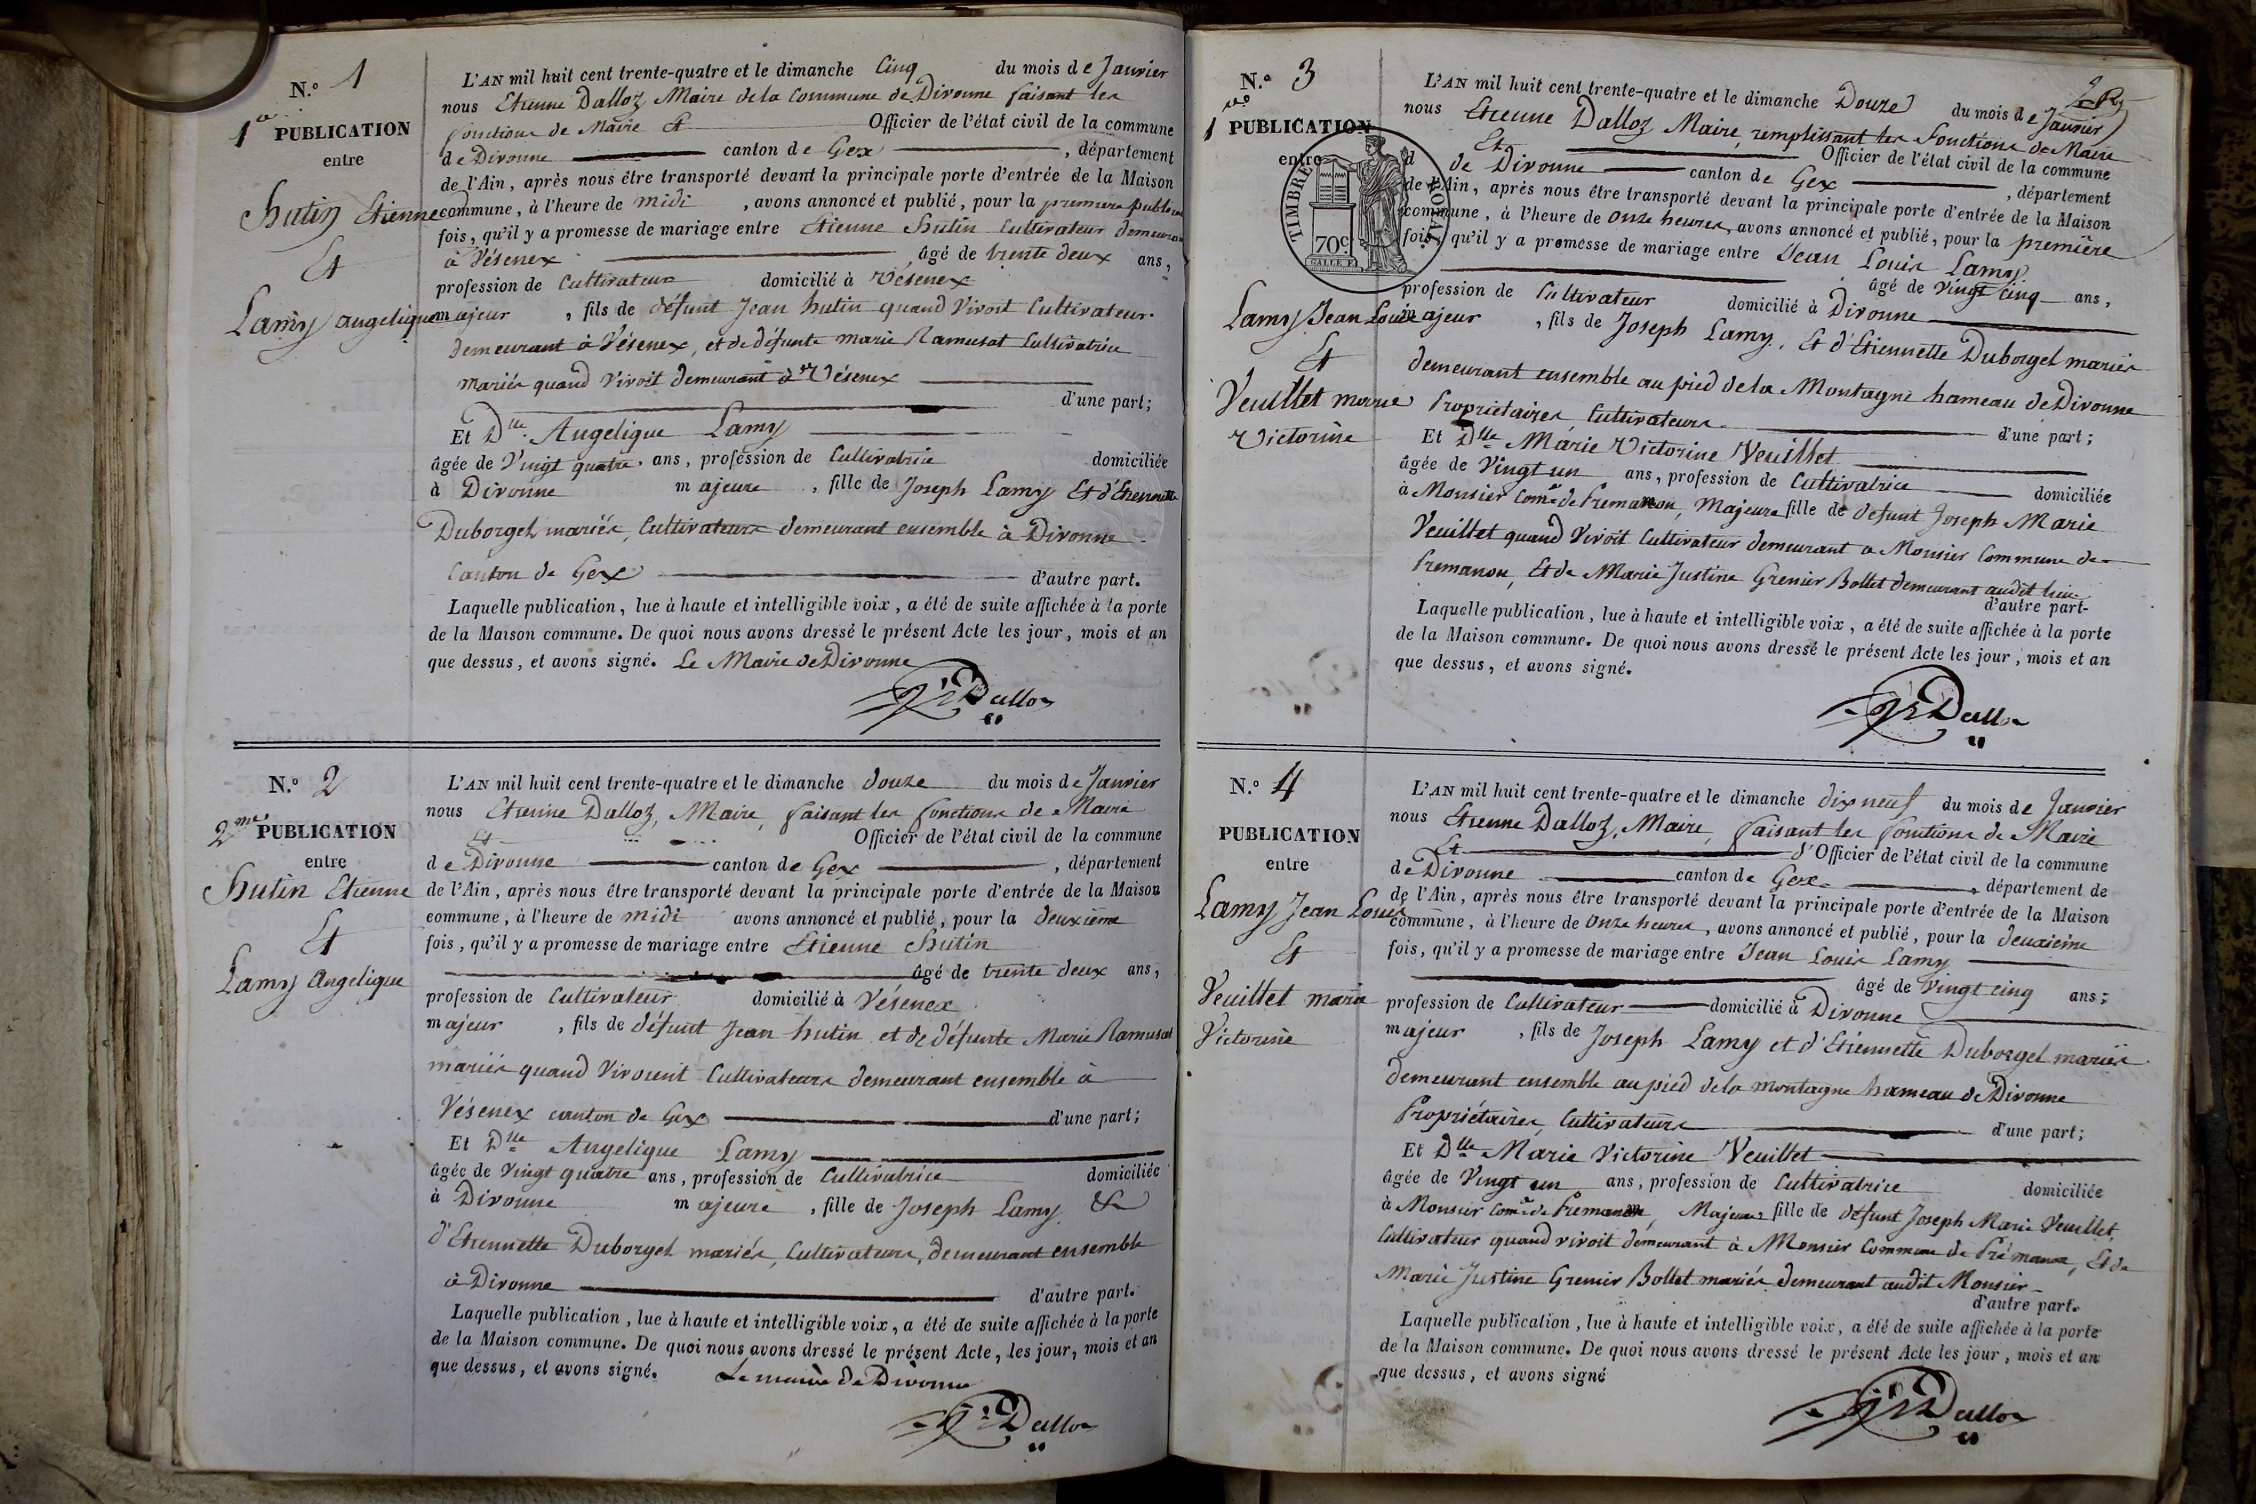 N.º 1
1re PUBLICATION
entre
Hutin Etienne
Et
Lamy Angelique
L'AN mil huit cent trente-quatre et le dimanche Cinq du mois de Janvier
nous Etienne Dalloz Maire de la Commune de Divonne faisant les
fonctions de Maire Et Officier de l'état civil de la commune
de Divonne canton de Gex, département
de l'Ain, après nous être transporté devant la principale porte d'entrée de la Maison
commune, à l'heure de midi, avons annoncé et publié, pour la premiere
fois, qu'il y a promesse de mariage entre Etienne Hutin Cultivateur
à Vésenex âgé de trente deux ans,
profession de Cultivateur domicilié à Vésenex
majeur, fils de défunt Jean hutin quand Vivoit Cultivateur
demeurant à Vésenex, et de défunte marie Ramusat Cultivatrice
Mariés quand Vivoit demeurant à Vésenex
d'une part;
Et Dlle Angelique Lamy
âgée de Vingt quatre ans, profession de Cultivatrice domiciliée
à Divonne majeure, fille de Joseph Lamy Et d'Etiennette
Duborgel mariés, Cultivateurs demeurant ensemble à Divonne
Canton de Gex d'autre part.
Laquelle publication, lue à haute et intelligible voix, a été de suite affichée à la porte
de la Maison commune. De quoi nous avons dressé le présent Acte les jour, mois et an
que dessus, et avons signé. Le Maire de Divonne
Dalloz
N.º 2
2me PUBLICATION
entre
Hutin Etienne
Et
Lamy Angelique
L'AN mil huit cent trente-quatre et le dimanche douze du mois de Janvier
nous Etienne Dalloz, Maire, faisant les fonctions de Maire
Et Officier de l'état civil de la commune
de Divonne canton de Gex, département
de l'Ain, après nous être transporté devant la principale porte d'entrée de la Maison
commune, à l'heure de midi avons annoncé et publié, pour la deuxième
fois, qu'il y a promesse de mariage entre Etienne Hutin
âgé de trente deux ans,
profession de Cultivateur domicilié à Vésenex
majeur, fils de défunt Jean hutin et de défunte Marie Ramusat
mariés quand Vivoient Cultivateurs demeurant ensemble à
Vésenex canton de Gex d'une part;
Et Dlle Angelique Lamy
âgée de Vingt quatre ans, profession de Cultivatrice domiciliée
à Divonne majeure, fille de Joseph Lamy &
d'Etiennette Duborgel mariés, Cultivateurs, demeurant ensemble
à Divonne d'autre part.
Laquelle publication, lue à haute et intelligible voix, a été de suite affichée à la porte
de la Maison commune. De quoi nous avons dressé le présent Acte, les jour, mois et an
que dessus, et avons signé. Le maire de Divonne
Dalloz
N.º 3
1re PUBLICATION
entre
TIMBRE ROYAL
70c
Lamy Jean Louis
Et
Veuillet marie
Victorine
L'AN mil huit cent trente-quatre et le dimanche Douze du mois de Janvier
nous Etienne Dalloz Maire, remplissant les fonctions de Maire
Et Officier de l'état civil de la commune
de Divonne canton de Gex, département
de l'Ain, après nous être transporté devant la principale porte d'entrée de la Maison
commune, à l'heure de onze heures, avons annoncé et publié, pour la première
fois, qu'il y a promesse de mariage entre Jean Louis Lamy
âgé de vingt cinq ans,
profession de Cultivateur domicilié à Divonne
majeur, fils de Joseph Lamy, Et d'Etiennette Duborgel mariés
demeurant ensemble au pied de la Montagne hameau de Divonne
Propriétaires, Cultivateurs d'une part;
Et Dlle Marie Victorine Veuillet
âgée de Vingt un ans, profession de Cultivatrice domiciliée
à Monsier Comne de Premanon, Majeure fille de défunt Joseph Marie
Veuillet quand Vivoit Cultivateur demeurant a Monsier Commune de
Premanon, Et de Marie Justine Grenier Bollet demeurant audit lieu
d'autre part.
Laquelle publication, lue à haute et intelligible voix, a été de suite affichée à la porte
de la Maison commune. De quoi nous avons dressé le présent Acte les jour, mois et an
que dessus, et avons signé.
Dalloz
N.º 4
PUBLICATION
entre
Lamy Jean Louis
Et
Veuillet marie
Victorine
L'AN mil huit cent trente-quatre et le dimanche dix neuf du mois de Janvier
nous Etienne Dalloz, Maire, faisant les fonctions de Maire
Et d'Officier de l'état civil de la commune
de Divonne canton de Gex, département de
de l'Ain, après nous être transporté devant la principale porte d'entrée de la Maison
commune, à l'heure de Onze heures, avons annoncé et publié, pour la deuxième
fois, qu'il y a promesse de mariage entre Jean Louis Lamy
âgé de Vingt cinq ans;
profession de Cultivateur domicilié à Divonne
majeur, fils de Joseph Lamy et d'Etiennette Duborgel mariés
demeurant ensemble au pied de la montagne hameau de Divonne
Propriétaires, Cultivateurs d'une part;
Et Dlle Marie Victorine Veuillet
âgée de Vingt un ans, profession de Cultivatrice domiciliée
à Monsier Comne de Premanon, Majeure fille de défunt Joseph Marie Veuillet
Cultivateur quand vivoit demeurant à Monsier Commune de Prémanon, Et de
Marie Justine Grenier Bollet mariés demeurant audit Monsier
d'autre part.
Laquelle publication, lue à haute et intelligible voix, a été de suite affichée à la porte
de la Maison commune. De quoi nous avons dressé le présent Acte les jour, mois et an
que dessus, et avons signé
Dalloz